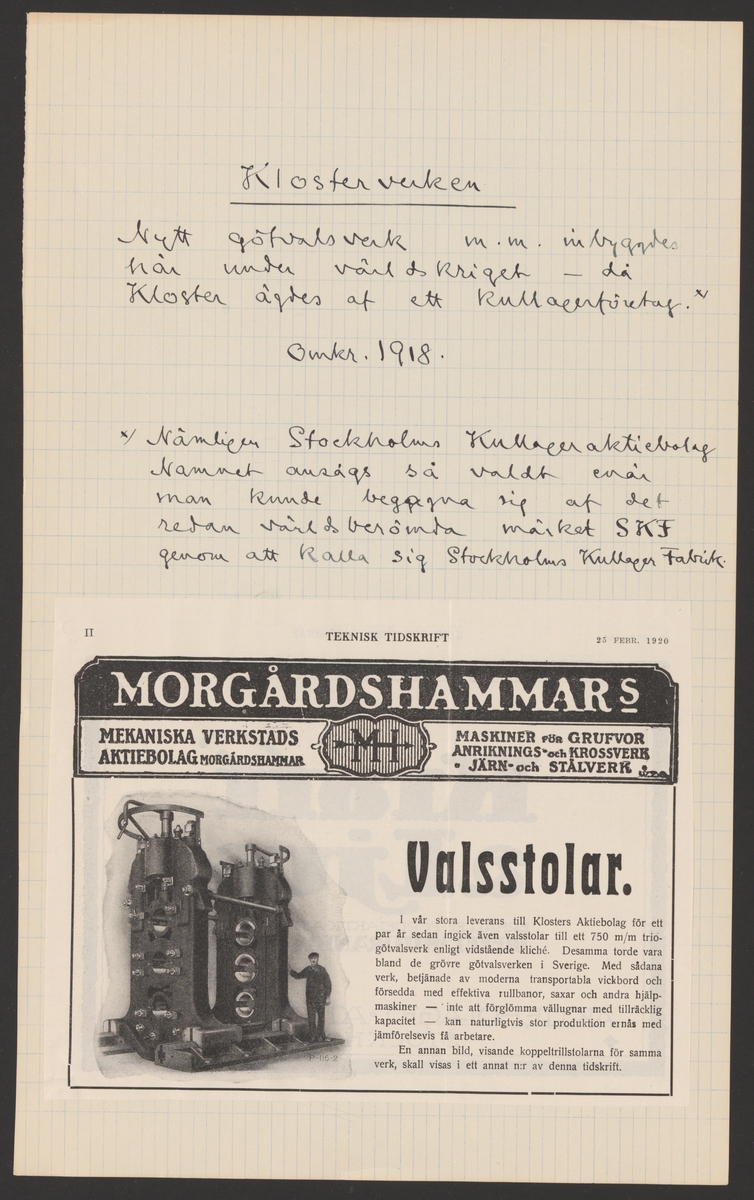 Klosterverken
Nytt götvalsverk m.m. inbyggdes
här under världskriget – då
Kloster ägdes af ett kullagerföretag. x/
Omkr. 1918.
x/ Nämligen Stockholms Kullageraktiebolag
Namnet ansågs så valdt enär
man kunde begagna sig af det
redan världsberömda märket SKF
genom att kalla sig Stockholms Kullager Fabrik.
II
TEKNISK TIDSKRIFT
25 FEBR. 1920
MORGÅRDSHAMMARS
MEKANISKA VERKSTADS
AKTIEBOLAG MORGÅRDSHAMMAR
MH
MASKINER FÖR GRUFVOR
ANRIKNINGS- och KROSSVERK
JÄRN- och STÅLVERK
Valsstolar.
I vår stora leverans till Klosters Aktiebolag för ett
par år sedan ingick även valsstolar till ett 750 m/m trio-
götvalsverk enligt vidstående kliché. Desamma torde vara
bland de grövre götvalsverken i Sverige. Med sådana
verk, betjänade av moderna transportabla vickbord och
försedda med effektiva rullbanor, saxar och andra hjälp-
maskiner — inte att förglömma vällugnar med tillräcklig
kapacitet — kan naturligtvis stor produktion ernås med
jämförelsevis få arbetare.
En annan bild, visande koppeltrillstolarna för samma
verk, skall visas i ett annat n:r av denna tidskrift.
P-116-2